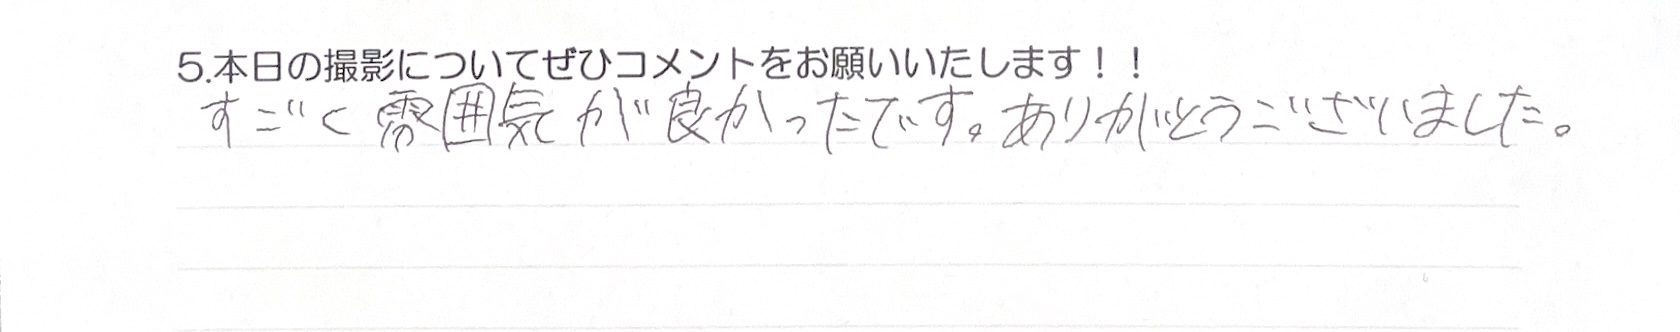 5.本日の撮影についてぜひコメントをお願いいたします！！
すごく雰囲気が良かったです。ありがとうございました。